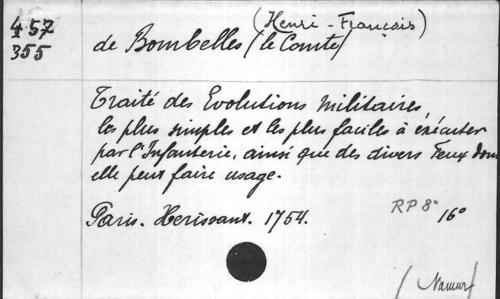 4.57
355
(Henri-François)
de Bombelles (le Comte)
Traité des Evolutions Militaires
les plus simples et les plus faciles à éxécuter
par l'Infanterie, ainsi que des divers Feux dont
elle peut faire usage.
Paris. Herissant. 1754.
RP 8° 16°
(Namur)